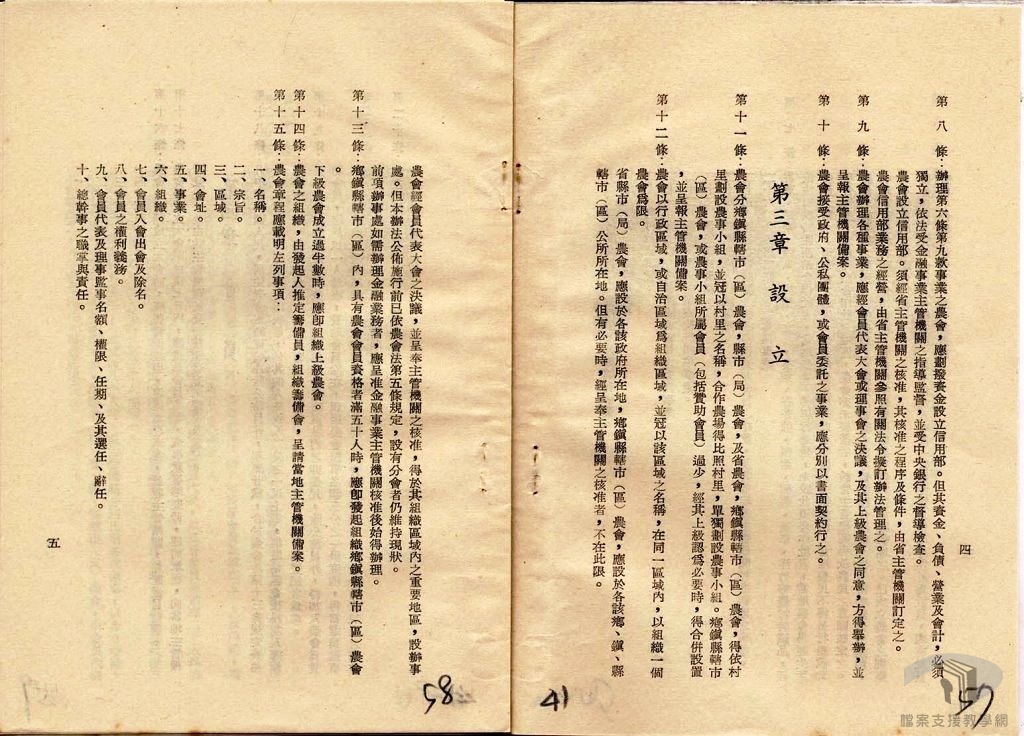 四
第八條:辦理第六條第九款事業之農會,應劃撥資金設立信用部。但其資金、負債、營業及會計,必須
獨立,依法受金融事業主管機關之指導監督,並受中央銀行之督導檢查。
農會設立信用部。須經省主管機關之核准,其核准之程序及條件,由省主管機關訂定之。
農會信用部業務之經營,由省主管機關參照有關法令擬訂辦法管理之。
第九條:農會辦理各種事業,應經會員代表大會或理事會之決議,及其上級農會之同意,方得舉辦,並
呈報主管機關備案。
第十條:農會接受政府、公私團體,或會員委託之事業,應分別以書面契約行之。
第三章 設立
第十一條:農會分鄉鎮縣轄市(區)農會,縣市(局)農會,及省農會,鄉鎮縣轄市(區)農會,得依村
里劃設農事小組,並冠以村里之名稱,合作農場得比照村里,單獨劃設農事小組。鄉鎮縣轄市
(區)農會,或農事小組所屬會員(包括贊助會員)過少,經其上級認爲必要時,得合併設置
,並呈報主管機關備案。
第十二條:農會以行政區域,或自治區域爲組織區域,並冠以該區域之名稱,在同一區域內,以組織一個
農會爲限。
省縣市(局)農會,應設於各該政府所在地,鄉鎮縣轄市(區)農會,應設於各該鄉、鎮、縣
轄市(區)公所所在地。但有必要時,經呈奉主管機關之核准者,不在此限。
57
41
農會經會員代表大會之決議,並呈奉主管機關之核准,得於其組織區域內之重要地區,設辦事
處。但本辦法公佈施行前已依農會法第五條規定,設有分會者仍維持現狀。
前項辦事處如需辦理金融業務者,應呈准金融事業主管機關核准後始得辦理。
第十三條:鄉鎮縣轄市(區)內,具有農會會員資格者滿五十人時,應卽發起組織鄉鎮縣轄市(區)農會
。
下級農會成立過半數時,應卽組織上級農會。
第十四條:農會之組織,由發起人推定籌備員,組織籌備會,呈請當地主管機關備案。
第十五條:農會章程應載明左列事項:
一、名稱。
二、宗旨。
三、區域。
四、會址。
五、事業。
六、組織。
七、會員入會出會及除名。
八、會員之權利義務。
九、會員代表及理事監事名額、權限、任期、及其選任、辭任。
十、總幹事之職掌與責任。
五
58
檔案支援教學網